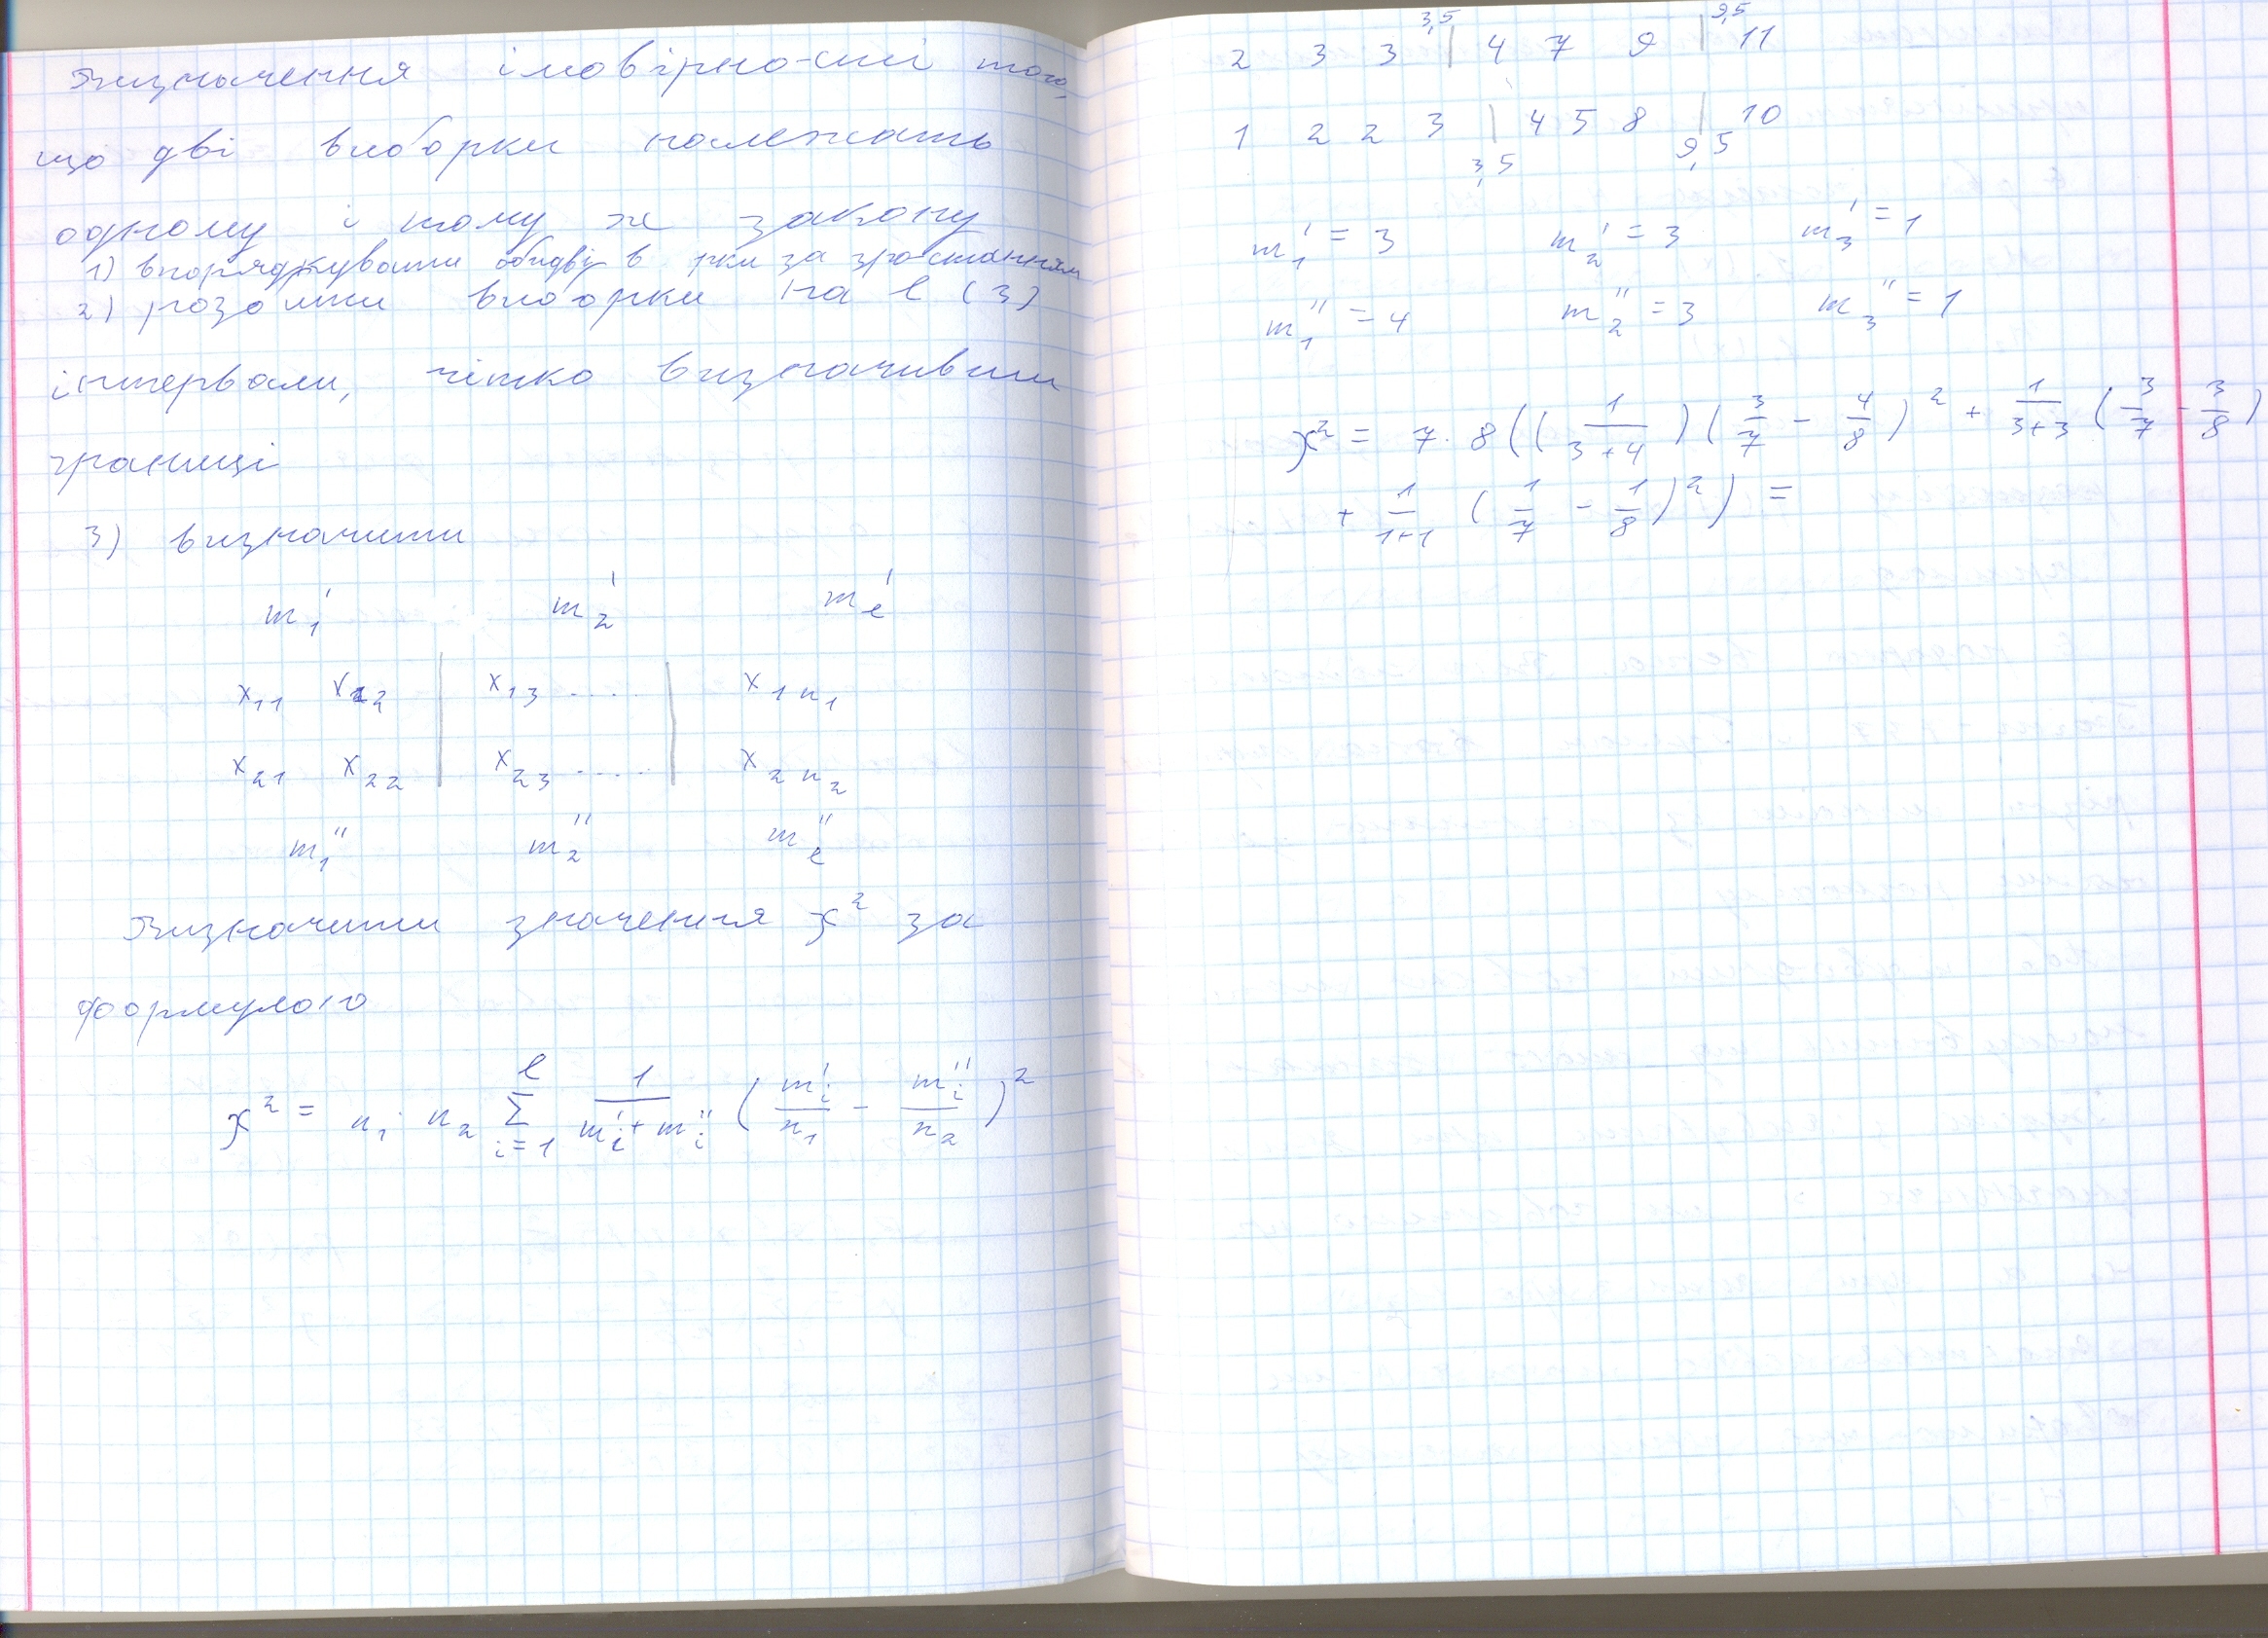 Визначення імовірно-сті того,
що дві виборки належать
одному і тому ж закону
1) впорядкувати обидві в рки за зростанням
2) розбити виборки на l (3)
інтервали, чітко визначивши
границі
3) визначити
m₁' m₂' mₗ'
x₁₁ x₁₂ | x₁₃ .... | x₁ₙ₁
x₂₁ x₂₂ | x₂₃ .... | x₂ₙ₂
m₁'' m₂'' mₗ''
Визначити значення χ² за
формулою
χ² = n₁ · n₂ Σ_{i=1}^{l} 1/(mᵢ' + mᵢ'') (mᵢ'/n₁ − mᵢ''/n₂)²
3,5 9,5
2 3 3 | 4 7 9 | 11
1 2 2 3 | 4 5 8 | 10
3,5 9,5
m₁' = 3 m₂' = 3 m₃' = 1
m₁'' = 4 m₂'' = 3 m₃'' = 1
χ² = 7 · 8 ((1/(3+4)) (3/7 − 4/8)² + 1/(3+3) (3/7 − 3/8)
+ 1/(1+1) (1/7 − 1/8)²) =